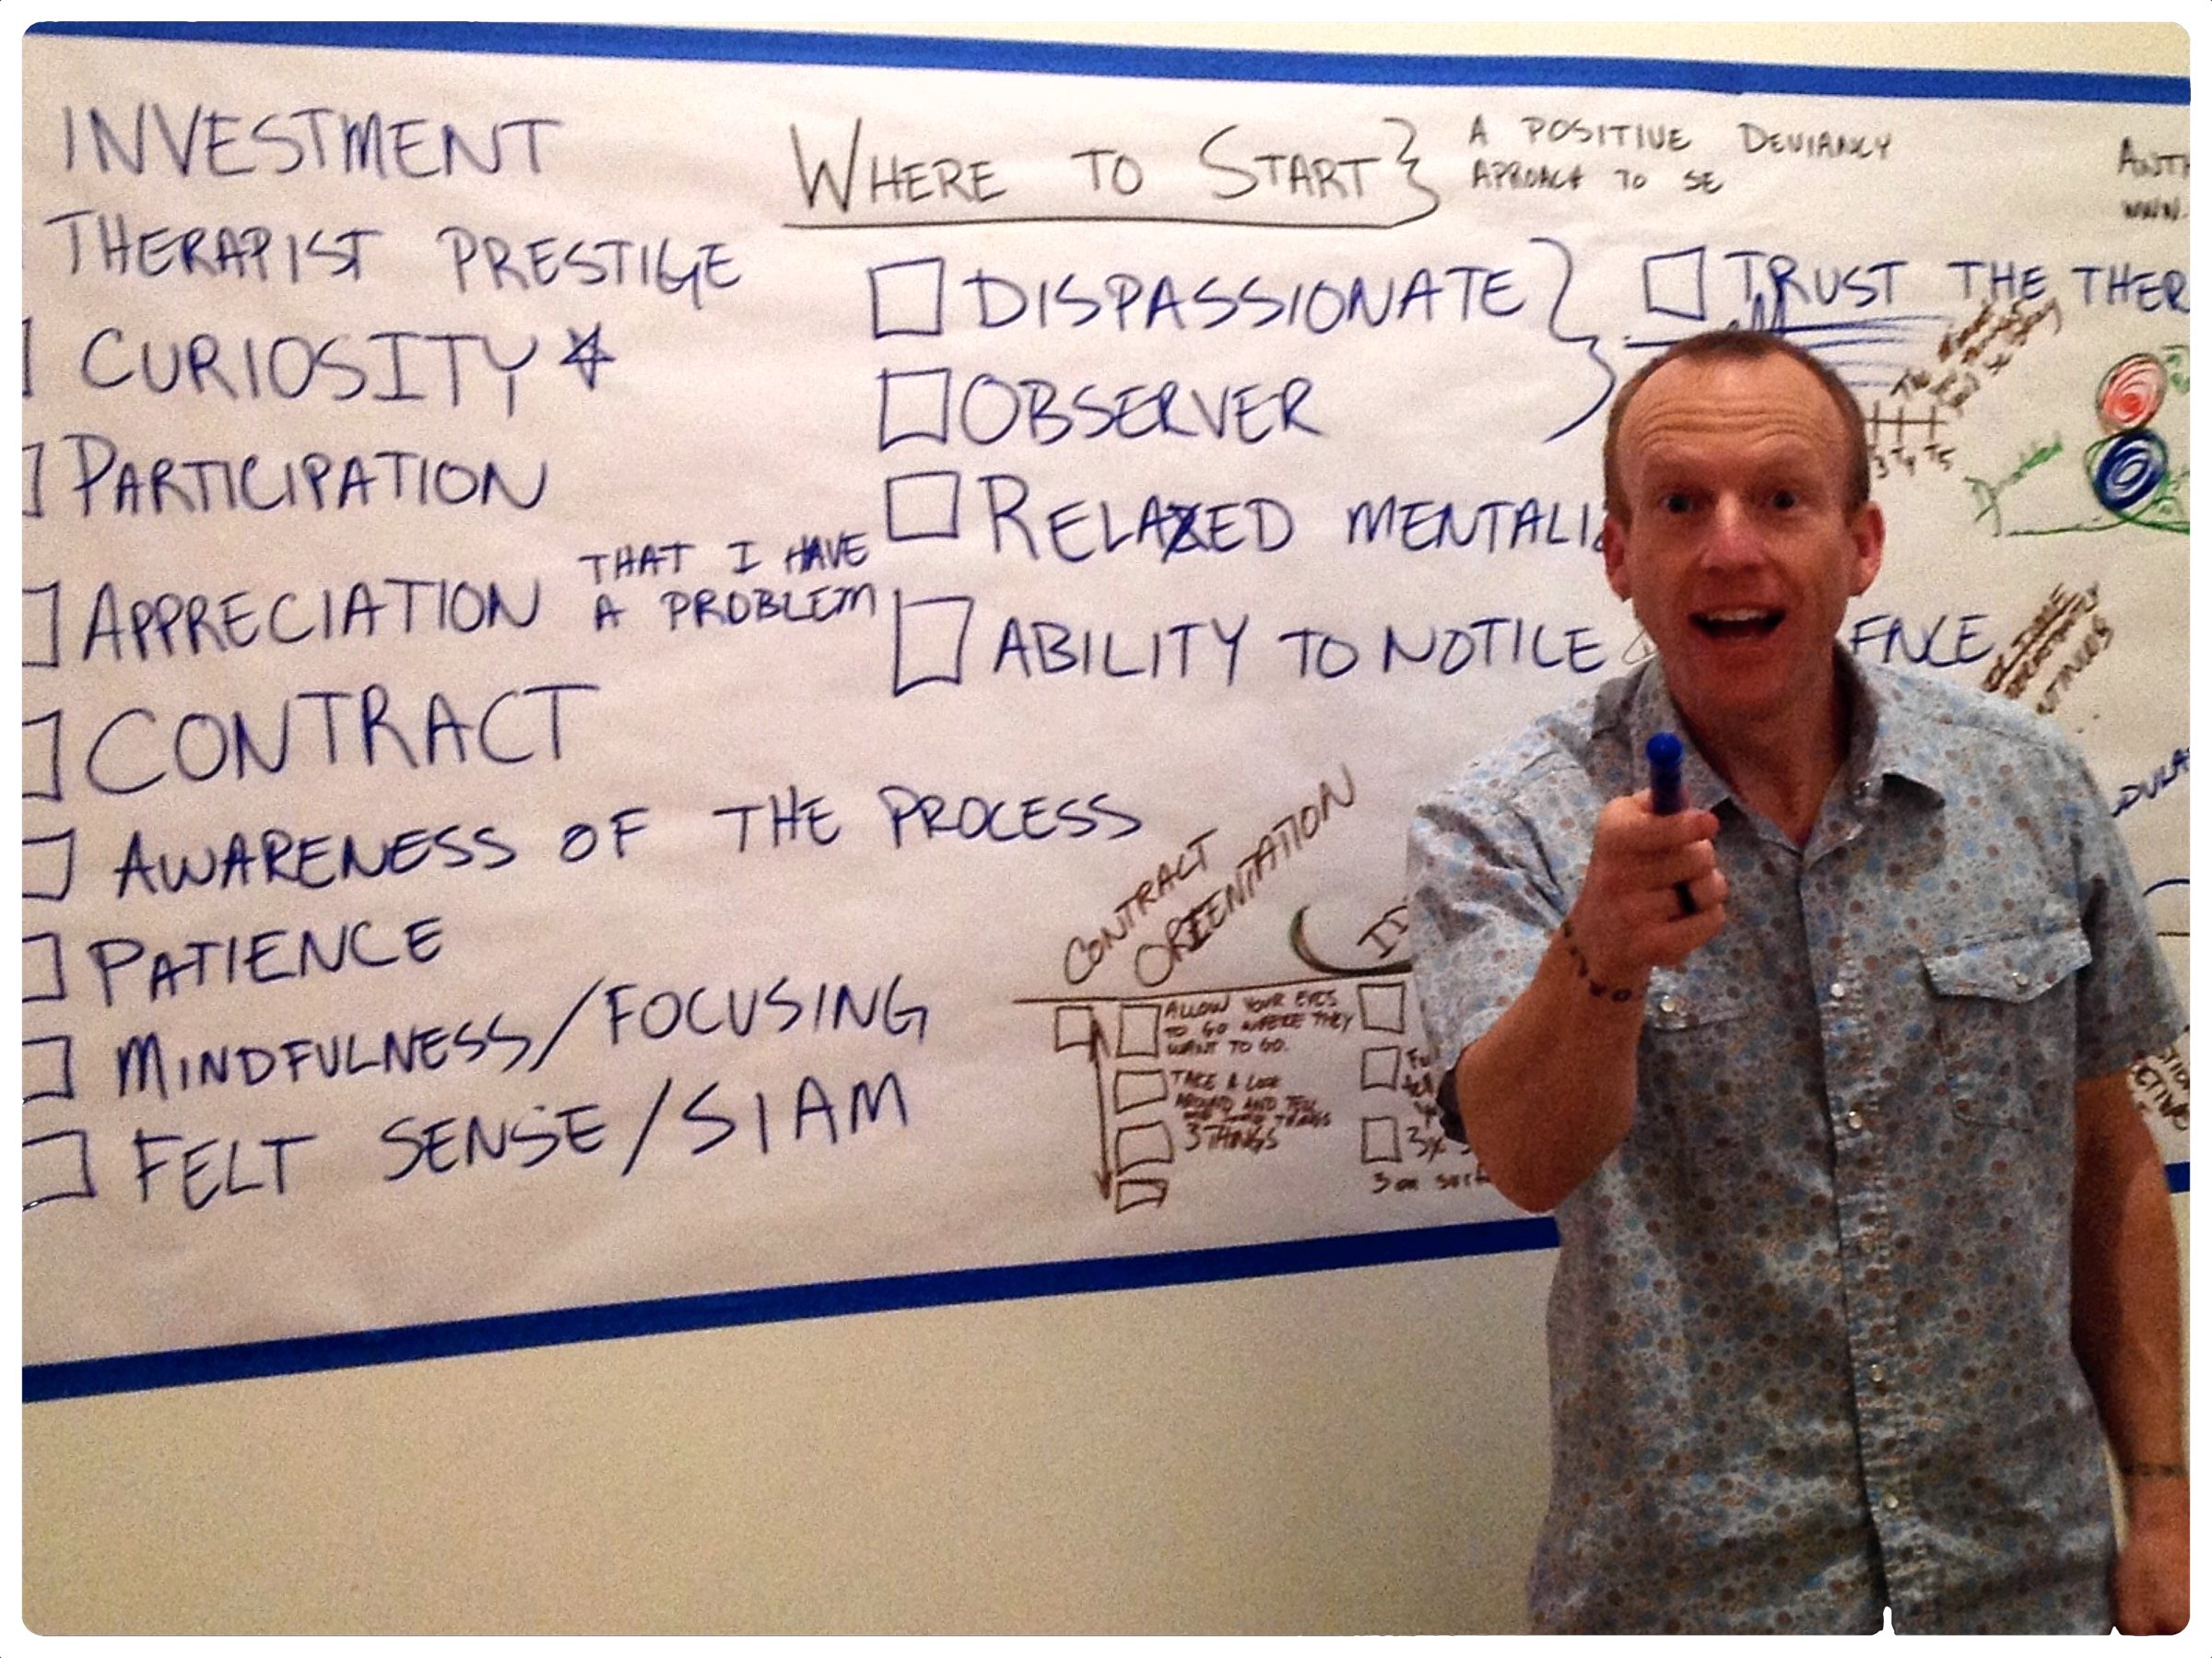 INVESTMENT
THERAPIST PRESTIGE
CURIOSITY
PARTICIPATION
APPRECIATION THAT I HAVE
A PROBLEM
CONTRACT
AWARENESS OF THE PROCESS
PATIENCE
MINDFULNESS/FOCUSING
FELT SENSE/SIAM
WHERE TO START
A POSITIVE DEVIANCY
APROACH TO SE
DISPASSIONATE
OBSERVER
RELAXED MENTALI
ABILITY TO NOTICE
ENCE
TRUST THE THER
WWW.
T4 T5
CONTRACT
ORIENTATION
ALLOW YOUR EYES
TO GO WHERE THEY
WANT TO GO.
TAKE A LOOK
AROUND AND TELL
THINGS
3 THINGS